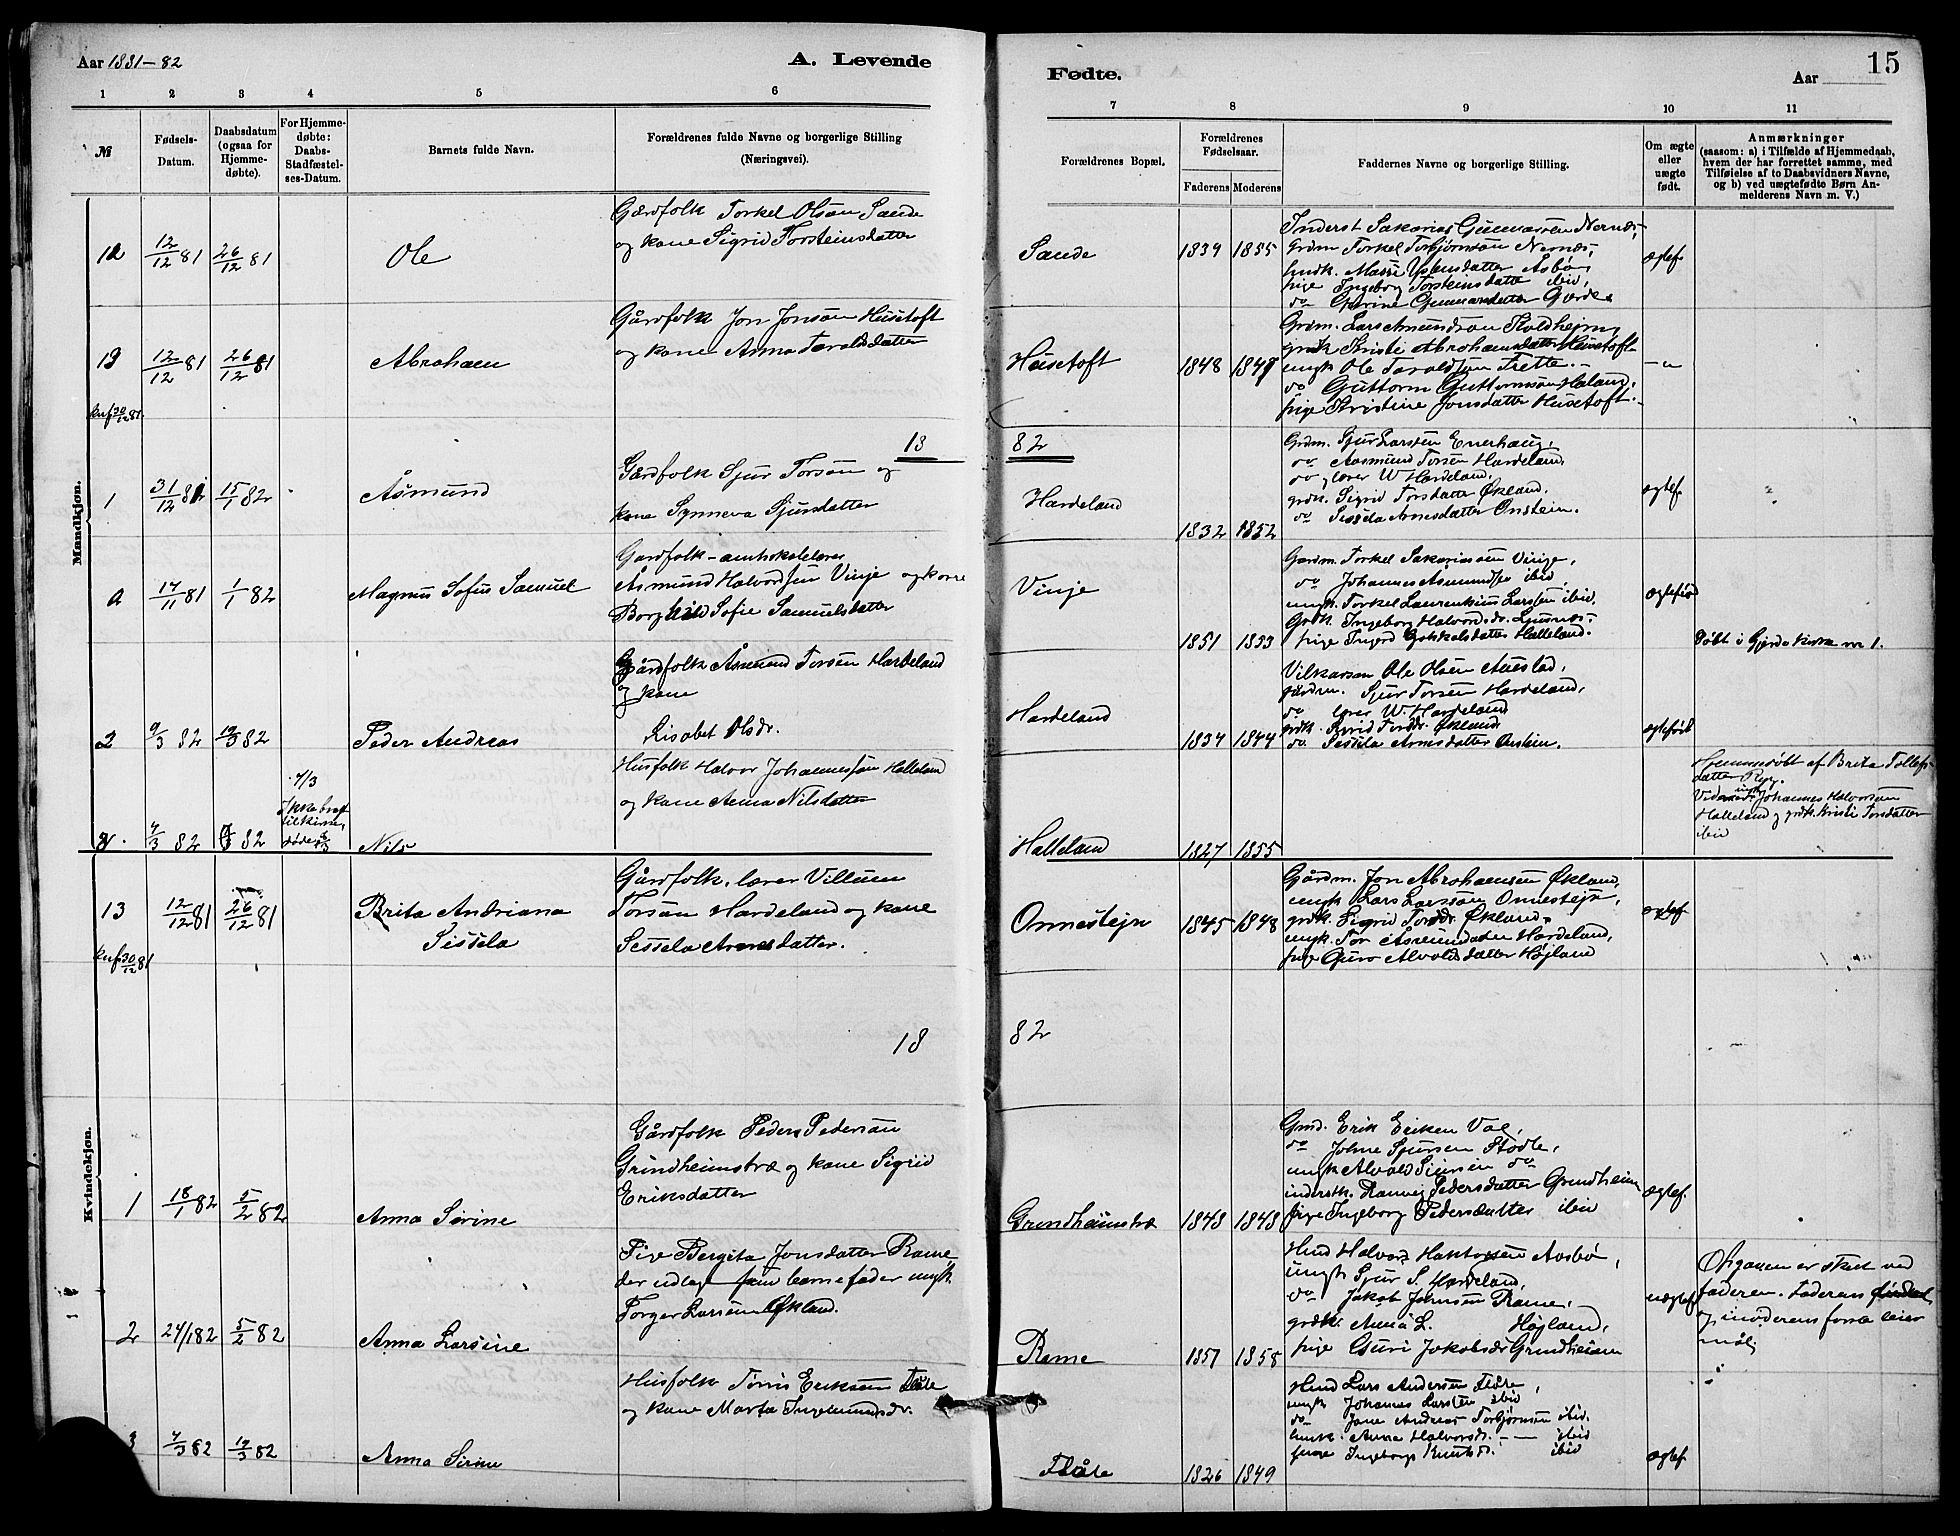 Aar 1881-82
A. Levende
Fødte.
Aar
15
1 2 3 4 5 6 7 8 9 10 11
№
Fødsels-
Datum.
Daabsdatum
(ogsaa for
Hjemme-
døbte).
For Hjemme-
døbte:
Daabs-
Stadfæstel-
ses-Datum.
Barnets fulde Navn.
Forældrenes fulde Navne og borgerlige Stilling
(Næringsvei).
Forældrenes Bopæl.
Forældrenes
Fødselsaar.
Faderens Moderens
Faddernes Navne og borgerlige Stilling.
Om ægte
eller
uægte
født.
Anmærkninger
(saasom: a) i Tilfælde af Hjemmedaab,
hvem der har forrettet samme, med
Tilføielse af to Daabsvidners Navne,
og b) ved uægtefødte Børn An-
melderens Navn m. V.)
Mandkjøn.
12
12/12 81
26/12 81
Ole
Gårdfolk Torkel Olson Sande
og kone Sigrid Torsteinsdatter
Sande
1834 1855
Inderst Sakarias Gunnarsen Nernæs,
Grdm. Torkel Torbjørnson Nernæs,
husk. Massi Ypsensdatter Åsbø,
pige Ingeborg Torsteinsdatter ibid,
do Gunnarsdatter Gjerde
ægtef
19
12/12 81
26/12 81
Abraham
Gårdfolk Jon Jonson Husetoft
og kone Anna Taraldsdatter
Husetoft
1848 1849
Grdm. Lars Amundson Skoldhejm,
grdk Kristi Abrohamsdatter Husetoft
ungk Ole Taraldson Trette
do Guttorm Guttormson Haland,
pige Kristine Jonsdatter Husetoft.
-"-
konf 30/12 81.
18 82
1
31/12 81
15/1 82
Åsmund
Gårdfolk Sjur Torson og
kone Synneva Sjursdatter
Hardeland
1832 1852
Grdm. Sjur Larsen Enerhaug,
do Aasmund Torsen Hardeland,
do g lærer W Hardeland,
grdk. Sigrid Torsdatter Økland,
do Sissela Arnesdatter Onstein.
ægtef
17/11 81
1/1 82
Magnus Sofus Samuel
Gardfolk - amtskolelærer
Åsmund Halvordsen Vinje og kone
Borghild Sofie Samuelsdatter
Vinje
1851 1853
Gardm. Torkel Sakariassen Vinje,
do Johannes Asmundsen ibid,
ungk. Torkel Laurenthius Larsen ibid.
Grdk. Ingeborg Halvorsdr. Ljusnæs
pige Ingerd Halleland.
ægtefød
Døbt i Gjerde Kirke no 1.
2
9/3 82
19/3 82
Peder Andreas
Gårdfolk Åsmund Torsen Hardeland
og kone
Lisabet Olsdr.
Hardeland
1834 1844
Vilkarsm Ole Olsen Auestad,
gårdm. Sjur Torsen Hardeland,
do lærer W. Hardeland
grdk. Sigrid Torsdr. Økland,
do. Sissela Arnesdatter Onstein.
ægtefødt
3.
7/3 82
7/3 82
7/3
Ikke bragt
til kirken,
døde
Nils
Husfolk Halvor Johannessøn Halleland
og kone Anna Nilsdatter
Halleland
1827 1855
Hjemmedøbt af Brita Tollefs-
datter Ryg.
Johannes Halvorsson
Halleland og grdk. Kristi Torsdatter
ibid
Kvindekjøn.
13
12/12 81
26/12 81
Brita Andriana
Sissela
Gårdfolk, lærer Villum
Torson Hardeland og kone
Sessela Arnesdatter.
Onnestejn
1845 1848
Gårdm. Jon Abrohamsen Økland,
ungk Lars Larsson Onnestejn,
grdk. Sigrid Torsdr. Økland,
ungk. Tor Asmundsen Hardeland,
pige Guro Alvoldsdatter Højland
ægtef
konf 30/12 81
18 82
1
18/1 82
5/2 82
Anna Serine
Gårdfolk Peder Pederson
Grindheimstræ og kone Sigrid
Eriksdatter
Grindheimstræ
1843 1843
Gmd. Erik Eriksen Vål,
do Johne Sjursen Stødle,
ungk Alvold Siursen do
inderstk. Ranveg Pedersdatter Grindheim
pige Ingeborg Pedersdatter ibid
ægtef.
2
24/1 82
5/2 82
Anna Larsine
Pige Bergita Jonsdatter Rame
der udlagt som barnefader ungk
Torger Larson Økland.
Rame
1857 1858
Husd Halvor Haktorsen Aasbø,
ungk Sjur S. Hardeland,
do Jakob Johnsen Rame,
grdk Anna L. Højland,
pige Guri Jakobsdr Grindheim
uægtef
Otganen er skeet ved
faderen. Faderens
og moderens første leier
mål.
3
7/3 82
19/3 82
Anna Serine
Husfolk Tørris Eriksen Fløle
og kone Marta Ingemundsdr.
Fløle
1826 1849
Husd Lars Andersen Fløle,
ungk Johannes Larsen ibid
do Jone Andreas Torbjørnsen ibid.
husk. Anna Halvorsdr. - ibid
pige Ingeborg Knutsd. ibid
ægtef